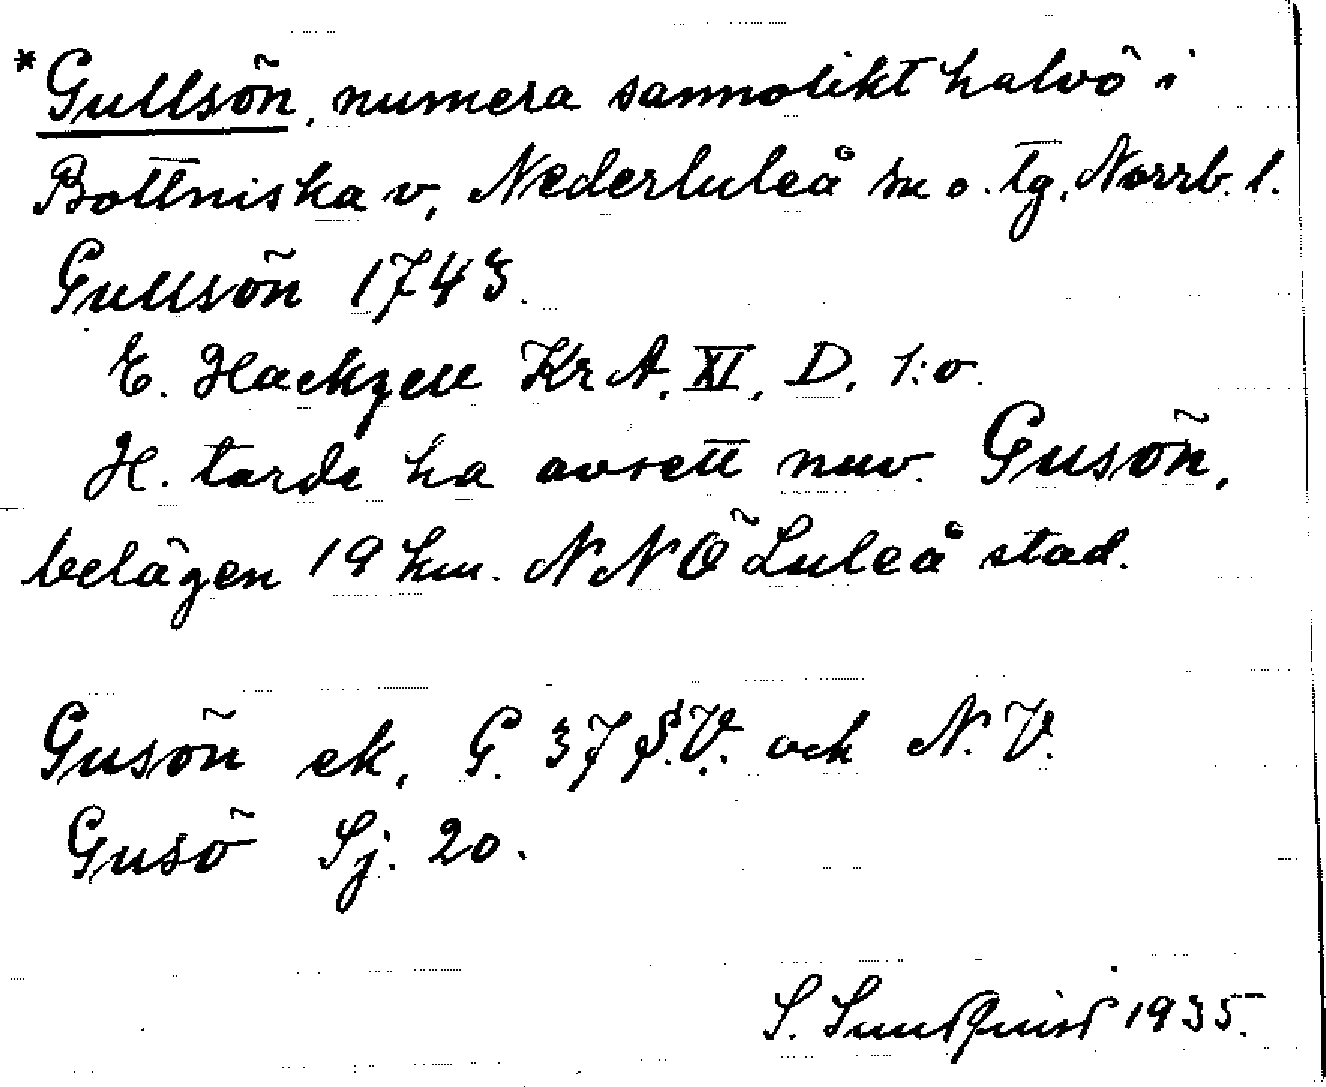 *Gullsön, numera sannolikt halvö i
Bottniska v, Nederluleå sn o. tg, Norrb. l.
Gullsön 1743.
E. Hackzell Kr A. XI, D, 1:o.
H. torde ha avsett nuv. Gusön,
belägen 19 km. NNÖ Luleå stad.
Gusön ek, G. 37 S.V. och N.V.
Gusö Sj. 20.
S. Sundquist 1935.